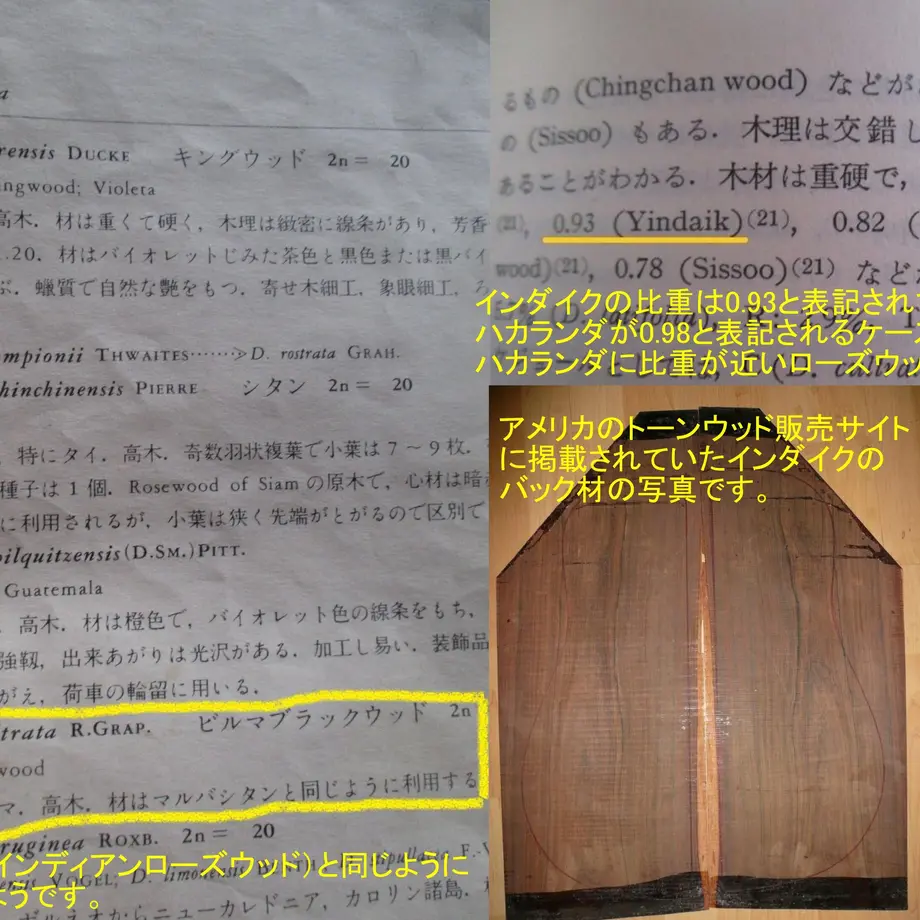 a
rensis DUCKE キングウッド 2n = 20
ngwood; Violeta
高木．材は重くて硬く，木理は緻密に線条があり，芳香
.20．材はバイオレットじみた茶色と黒色または黒バイ
ぶ．蠟質で自然な艶をもつ．寄せ木細工，象眼細工，ろ
mpionii THWAITES……> D. rostrata GRAH.
hinchinensis PIERRE シタン 2n = 20
，特にタイ．高木．奇数羽状複葉で小葉は7～9枚．
種子は1個．Rosewood of Siamの原木で，心材は暗
に利用されるが，小葉は狭く先端がとがるので区別で
oilquitzensis (D.SM.) PITT.
Guatemala
．高木．材は橙色で，バイオレット色の線条をもち，
強靱，出来あがりは光沢がある．加工し易い．装飾品
がえ，荷車の輪留に用いる．
trata R.GRAP. ビルマブラックウッド 2n
wood
マ．高木．材はマルバシタンと同じように利用する
ruginea ROXB. 2n = 20
インディアンローズウッド)と同じように
VOGEL; D. limonensis
ようです。
ボルネオからニューカレドニア，カロリン諸島．
るもの (Chingchan wood) などが
の (Sissoo) もある．木理は交錯し
あることがわかる．木材は重硬で，
(21)， 0.93 (Yindaik)(21)， 0.82 (
wood)(21)， 0.78 (Sissoo)(21) などが
インダイクの比重は0.93と表記され
ハカランダが0.98と表記されるケー
ハカランダに比重が近いローズウッ
アメリカのトーンウッド販売サイト
に掲載されていたインダイクの
バック材の写真です。